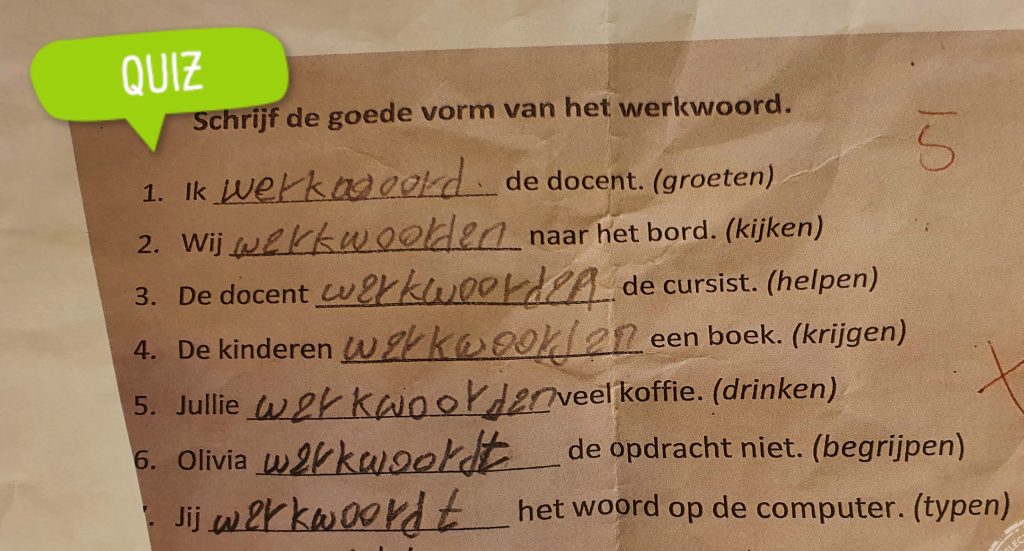 QUIZ
Schrijf de goede vorm van het werkwoord.
5
1. Ik werkwoord. de docent. (groeten)
2. Wij werkwoorden naar het bord. (kijken)
3. De docent werkwoorden de cursist. (helpen)
4. De kinderen werkwoorden een boek. (krijgen)
5. Jullie werkwoorden veel koffie. (drinken)
6. Olivia werkwoordt de opdracht niet. (begrijpen)
Jij werkwoordt het woord op de computer. (typen)